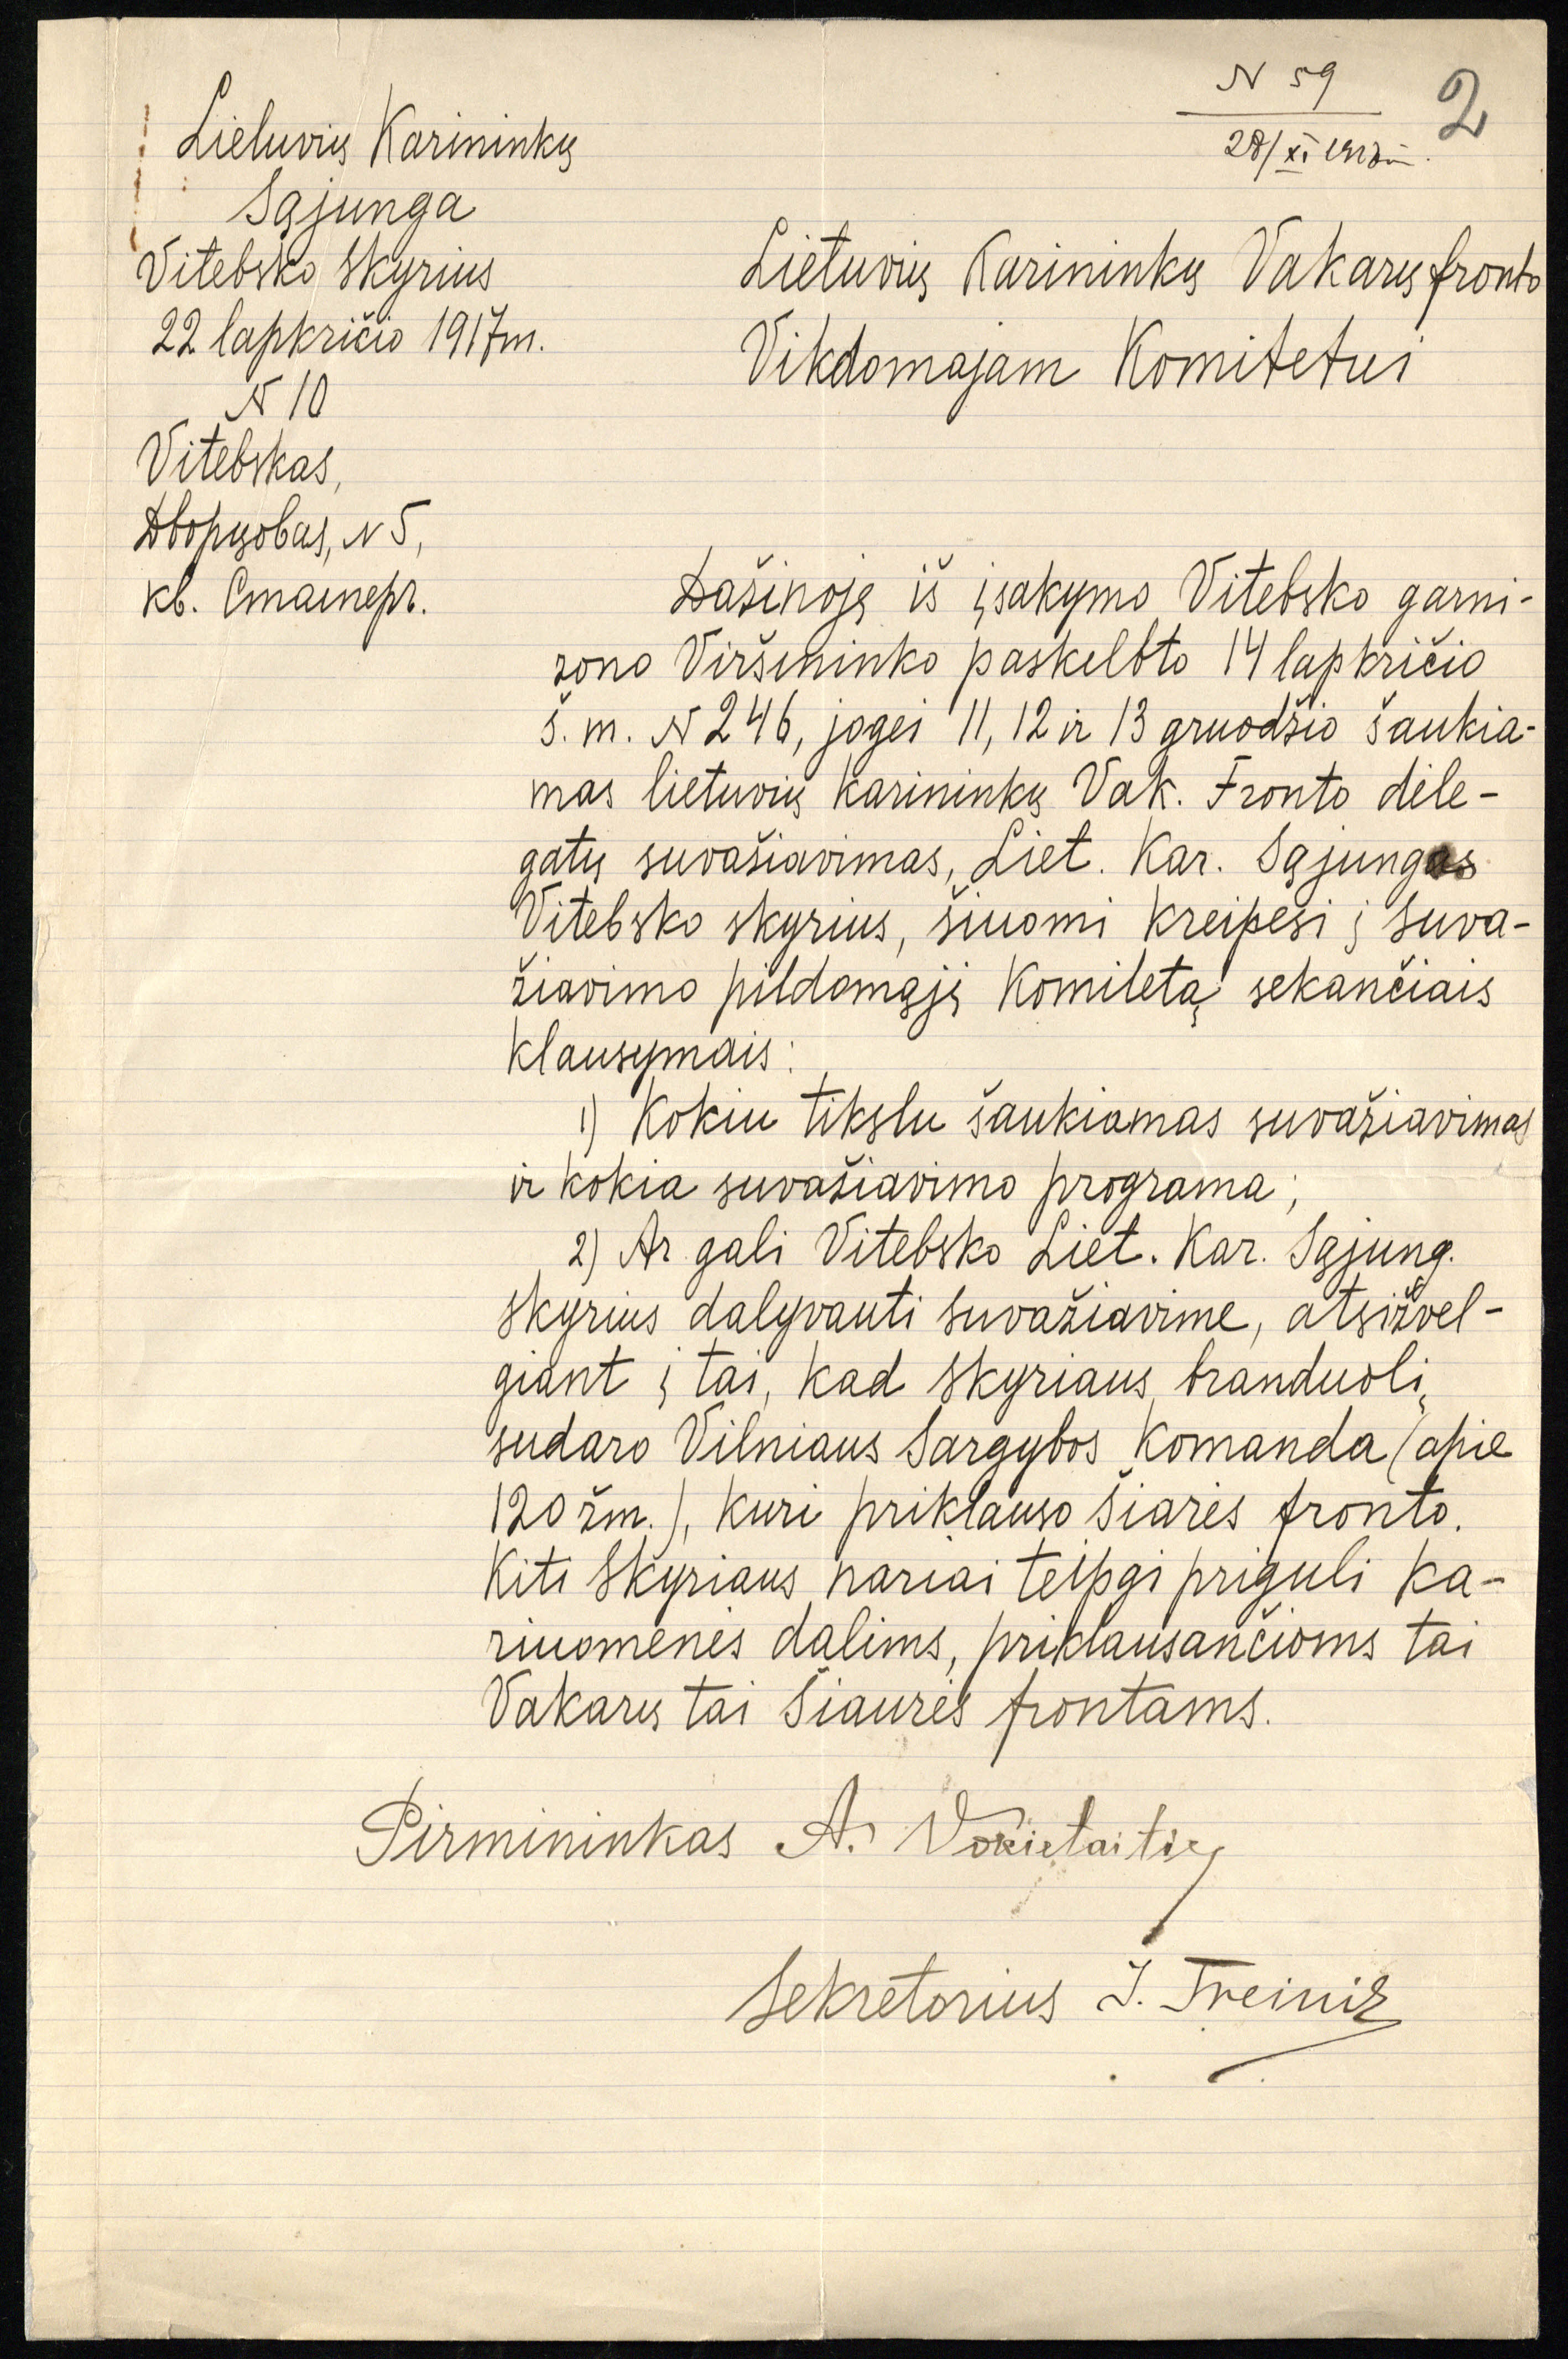 N 59
28/XI 1917 m.
2
Lietuvių Karininkų
Sąjunga
Vitebsko Skyrius
22 lapkričio 1917m.
N 10
Vitebskas,
Дворцовая, N 5,
кв. Статнерг.
Lietuvių Karininkų Vakarų fronto
Vikdomajam Komitetui
Dašinoję iš įsakymo Vitebsko garni-
zono Viršininko paskelbto 14 lapkričio
š. m. N 246, jogei 11, 12 ir 13 gruodžio šaukia-
mas lietuvių karininkų Vak. Fronto dele-
gatų suvažiavimas, Liet. Kar. Sąjungos
Vitebsko skyrius, šiuomi kreipėsi į Suva-
žiavimo pildomąjį Komitetą sekančiais
klausymais:
1) Kokiu tikslu šaukiamas suvažiavimas
ir kokia suvažiavimo programa;
2) Ar gali Vitebsko Liet. Kar. Sąjung.
skyrius dalyvauti suvažiavime, atsižvel-
giant į tai, kad skyriaus branduolį
sudaro Vilniaus Sargybos Komanda (apie
120 žm.), kuri priklauso Šiarės fronto.
Kiti Skyriaus nariai teipgi priguli ka-
riuomenės dalims, priklausančioms tai
Vakarų tai Šiaurės frontams.
Pirmininkas A. Vokietaitis
Sekretorius J. Treinis